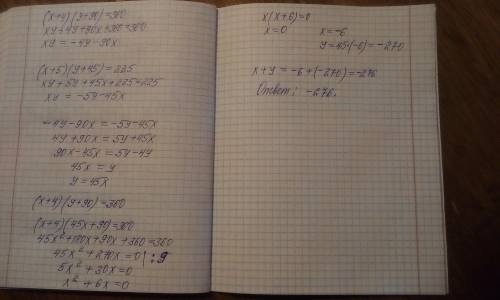 (x+4)(y+90)=360
xy+4y+90x+360=360
xy = -4y-90x
(x+5)(y+45)=225
xy+5y+45x+225=225
xy = -5y-45x
-4y-90x = -5y-45x
4y+90x = 5y+45x
90x-45x = 5y-4y
45x = y
y = 45x
(x+4)(y+90)=360
(x+4)(45x+90)=360
45x²+180x+90x+360=360
45x²+270x=0 | :9
5x²+30x=0
x²+6x=0
x(x+6)=0
x=0 x=-6
y=45·(-6)=-270
x+y = -6+(-270)=-276
Ответ: -276.